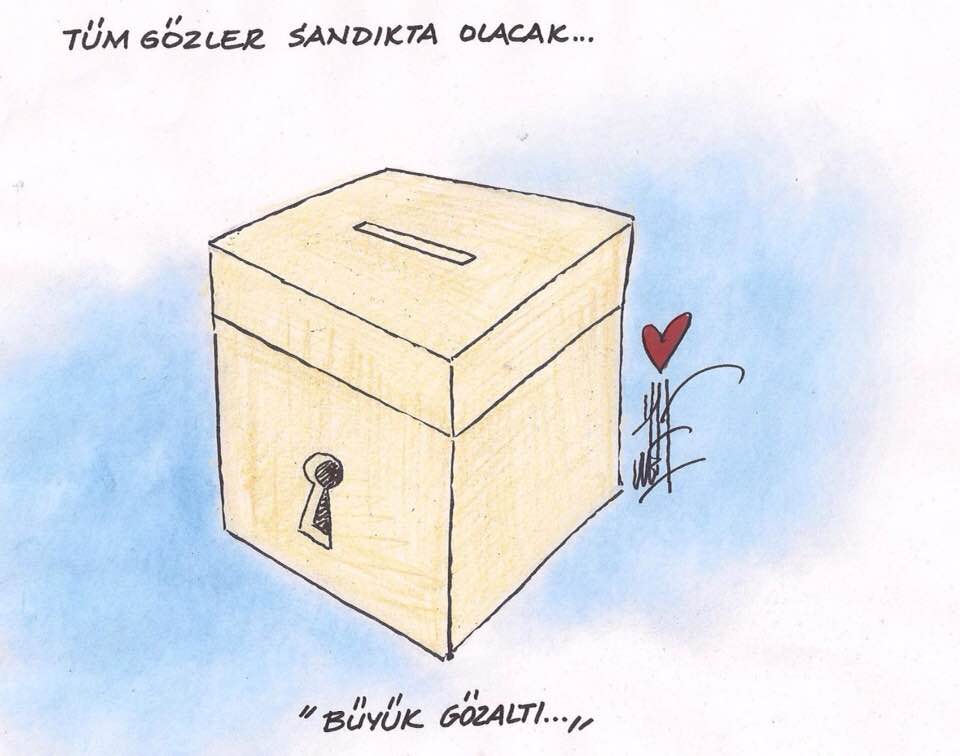 TÜM GÖZLER SANDIKTA OLACAK...
"BÜYÜK GÖZALTI...„